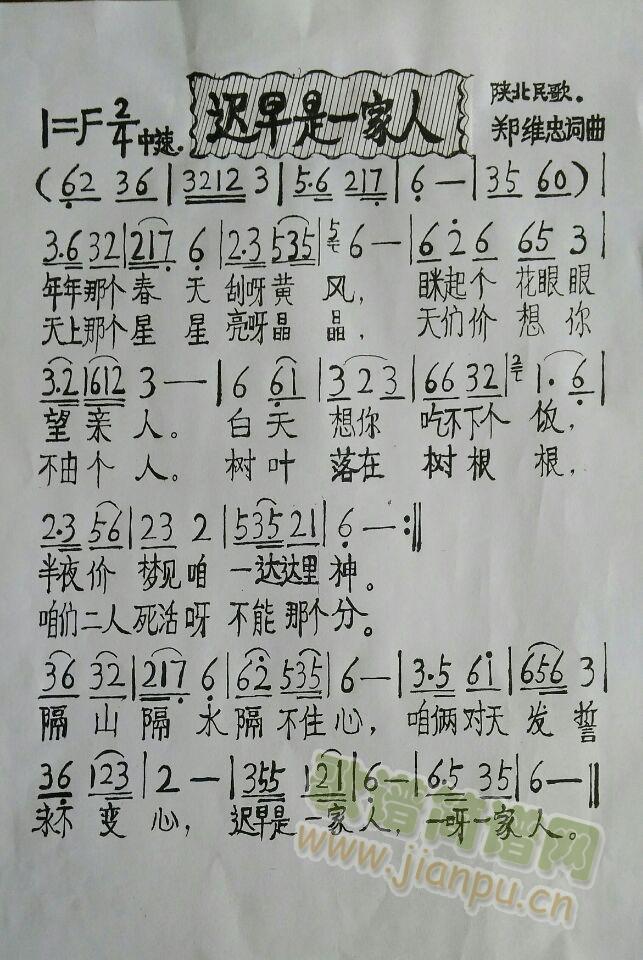 1=F 2/4 中速. 迟早是一家人 陕北民歌。
郑维忠词曲
(62 36 | 3212 3 | 5·6 217 | 6 — | 35 60) |
3·6 32 | 217 6 | 2·3 535 | 5 6 — | 626 65 3 |
年年那个春天刮呀黄风, 眯起个花眼眼
天上那个星星亮呀晶晶, 天们价想你
3·2 1612 3 — | 6 61 | 323 | 66 32 | 2 1·6 |
望亲人。白天想你吃不下个饭,
不由个人。树叶落在树根根,
2·3 56 | 23 2 | 535 21 | 6 — :||
半夜价梦见咱一达达里神。
咱们二人死活呀不能那个分。
36 32 | 217 6 | 62 535 | 6 — | 3·5 61 | 656 3 |
隔山隔水隔不住心, 咱俩对天发誓
36 123 | 2 — | 355 121 | 6 — | 6·5 35 | 6 — ||
永不变心, 迟早是一家人, 一呀一家人。
歌谱简谱网
www.jianpu.cn